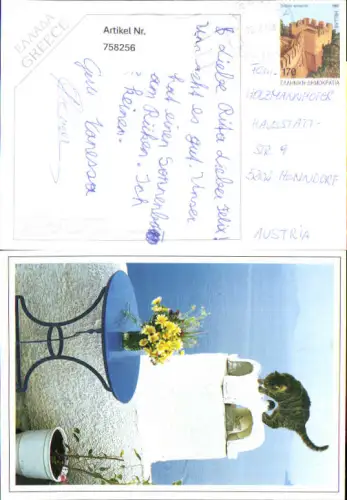 ΕΛΛΑΔΑ
GREECE
Artikel Nr.
758256
Liebe Rita Lieber Felix!
Uns geht es gut. Unser
hat einen Sonnenbrand
am Rücken. Ich
keinen.
Vanessa
170
ΕΛΛΗΝΙΚΗ ΔΗΜΟΚΡΑΤΙΑ
HELLAS
FAM.
HOLZMANNHOFER
HALLSTATT-
STR 9
HENNDORF
AUSTRIA